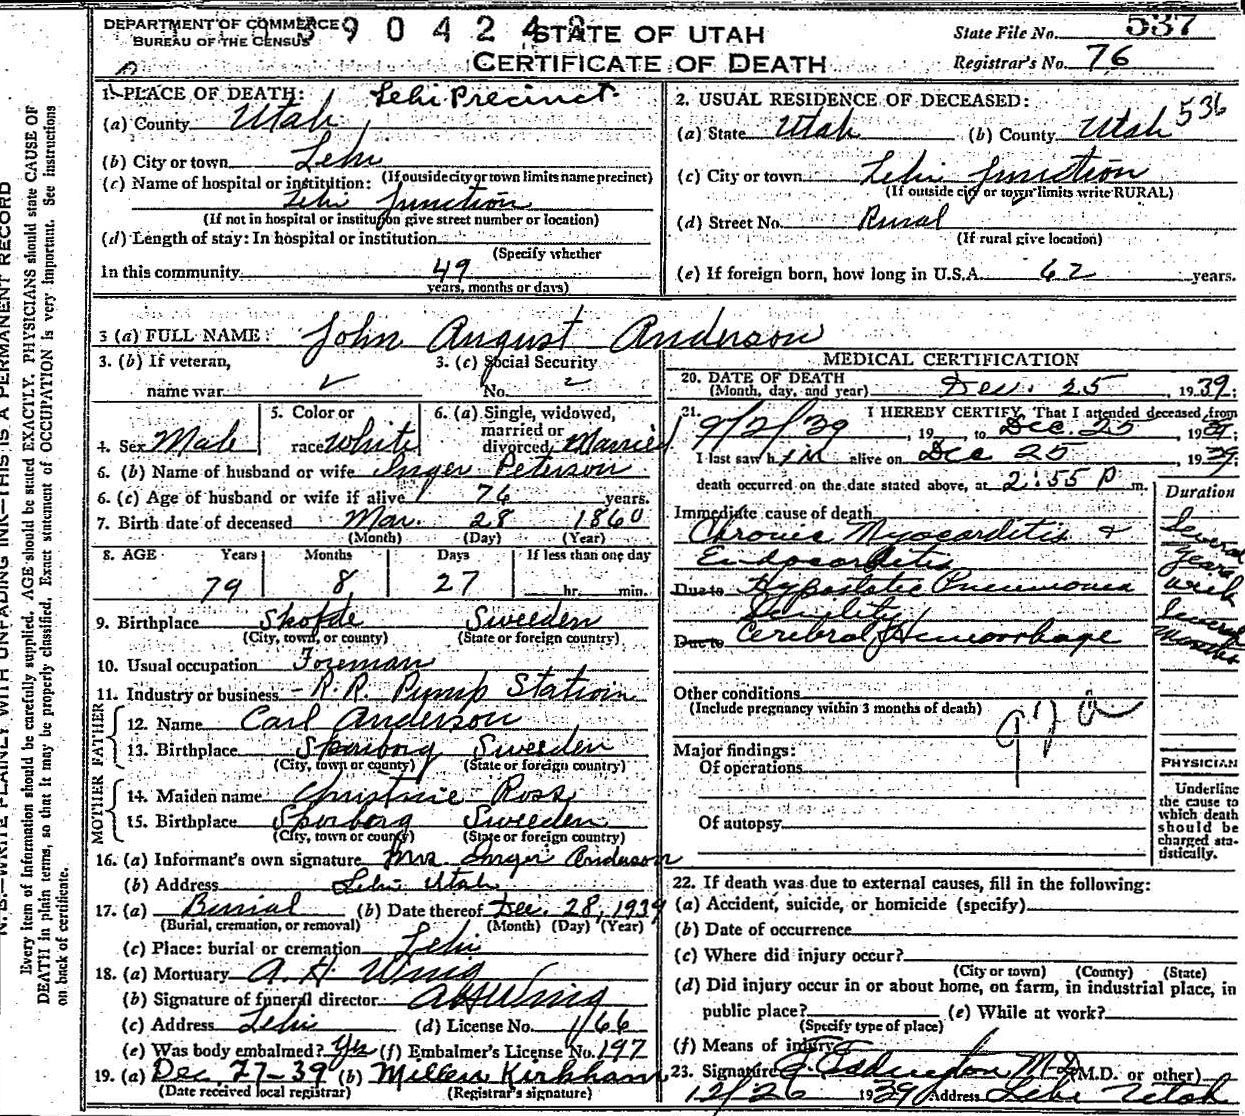 DEPARTMENT OF COMMERCE
BUREAU OF THE CENSUS
3 9 0 4 2 4 2
STATE OF UTAH
CERTIFICATE OF DEATH
State File No. 537
Registrar's No. 76
1. PLACE OF DEATH: Lehi Precinct
(a) County Utah
(b) City or town Lehi
(If outside city or town limits name precinct)
(c) Name of hospital or institution:
Lehi Junction
(If not in hospital or institution give street number or location)
(d) Length of stay: In hospital or institution
(Specify whether
In this community 49
years, months or days)
2. USUAL RESIDENCE OF DECEASED:
(a) State Utah (b) County Utah 536
(c) City or town Lehi Junction
(If outside city or town limits write RURAL)
(d) Street No. Rural
(If rural give location)
(e) If foreign born, how long in U.S.A. 62 years.
3 (a) FULL NAME: John August Anderson
3. (b) If veteran,
name war
3. (c) Social Security
No.
4. Sex Male
5. Color or
race White
6. (a) Single, widowed,
married or
divorced Married
6. (b) Name of husband or wife Inger Peterson
6. (c) Age of husband or wife if alive 76 years.
7. Birth date of deceased Mar. 28 1860
(Month) (Day) (Year)
8. AGE Years Months Days If less than one day
79 8 27 hr. min.
9. Birthplace Skofde Sweeden
(City, town, or county) (State or foreign country)
10. Usual occupation Foreman
11. Industry or business - R.R. Pump Station
FATHER
12. Name Carl Anderson
13. Birthplace Sweeden
(City, town or county) (State or foreign country)
MOTHER
14. Maiden name Christine Ross
15. Birthplace Sweeden
(City, town or county) (State or foreign country)
16. (a) Informant's own signature Mrs. Inger Anderson
(b) Address Lehi Utah
17. (a) Burial (b) Date thereof Dec. 28, 1939
(Burial, cremation, or removal) (Month) (Day) (Year)
(c) Place: burial or cremation Lehi
18. (a) Mortuary A. H. Wing
(b) Signature of funeral director A H Wing
(c) Address Lehi (d) License No. 166
(e) Was body embalmed? Yes (f) Embalmer's License No. 197
19. (a) Dec 27-39 (b) Kirkham
(Date received local registrar) (Registrar's signature)
MEDICAL CERTIFICATION
20. DATE OF DEATH
(Month, day, and year) Dec. 25, 1939;
21. I HEREBY CERTIFY, That I attended deceased from
9/2/39, 19 , to Dec. 25, 1939;
I last saw him alive on Dec 25, 1939;
death occurred on the date stated above, at 2:55 P m.
Duration
Immediate cause of death
Chronic Myocarditis &
Endocarditis
Several
years
Due to Hypostatic Pneumonia
week
Senility
Several
Due to Cerebral Hemorrhage
months
Other conditions
(Include pregnancy within 3 months of death)
97 a
Major findings:
Of operations
Of autopsy
PHYSICIAN
Underline
the cause to
which death
should be
charged sta-
tistically.
22. If death was due to external causes, fill in the following:
(a) Accident, suicide, or homicide (specify)
(b) Date of occurrence
(c) Where did injury occur?
(City or town) (County) (State)
(d) Did injury occur in or about home, on farm, in industrial place, in
public place? (e) While at work?
(Specify type of place)
(f) Means of injury
23. Signature Eddington M.D. (M.D. or other)
12/26 1939 Address Lehi Utah
N. B.—WRITE PLAINLY, WITH UNFADING INK—THIS IS A PERMANENT RECORD
Every item of information should be carefully supplied. AGE should be stated EXACTLY. PHYSICIANS should state CAUSE OF
DEATH in plain terms, so that it may be properly classified. Exact statement of OCCUPATION is very important. See instructions
on back of certificate.